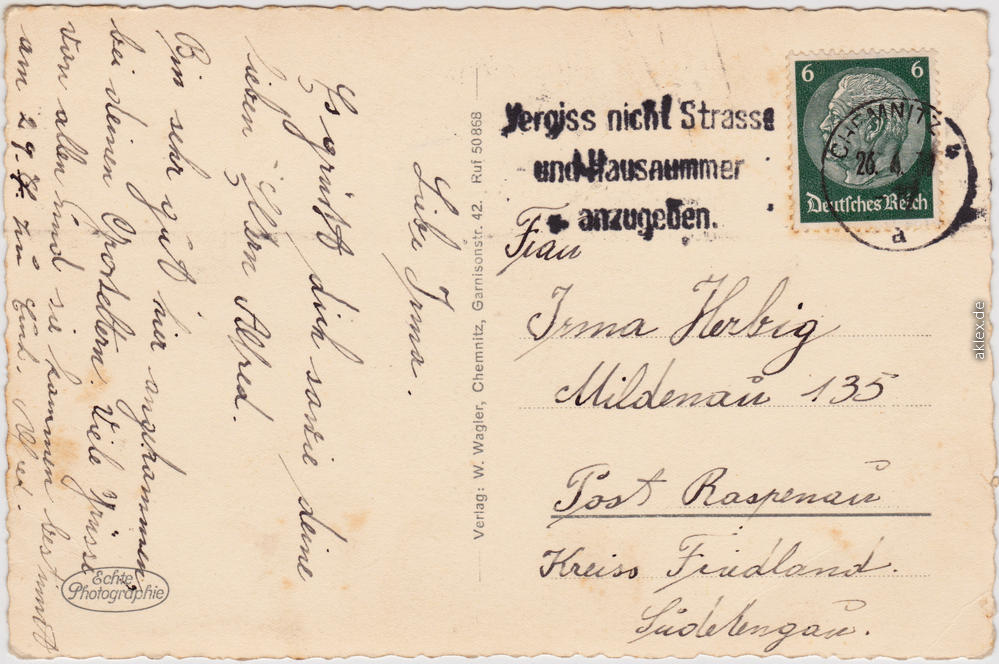 Liebe Irma.
Es grüßt dich sowie deine
lieben Eltern Alfred.
Bin sehr gut hier angekommen,
bei deinen Großeltern. Viele Grüsse
von allen und sie kommen bestimmt
am 29. zu Euch. Alfred.
Echte
Photographie
Verlag: W. Wagler, Chemnitz, Garnisonstr. 42. Ruf 50868
Vergiss nicht Strasse
und Hausnummer
anzugeben.
6 6
Deutsches Reich
CHEMNITZ
26. 4.
d
Frau
Irma Herbig
Mildenau 135
Post Raspenau
Kreiss Friedland.
Südetengau.
aklex.de